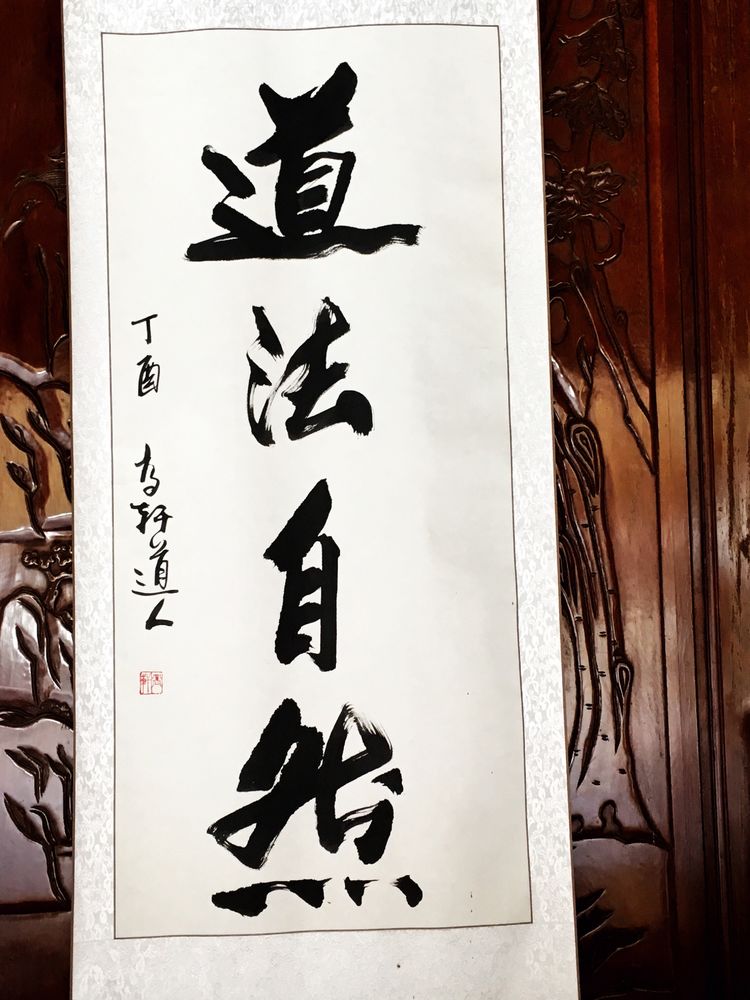 道法自然
丁酉
轩道人